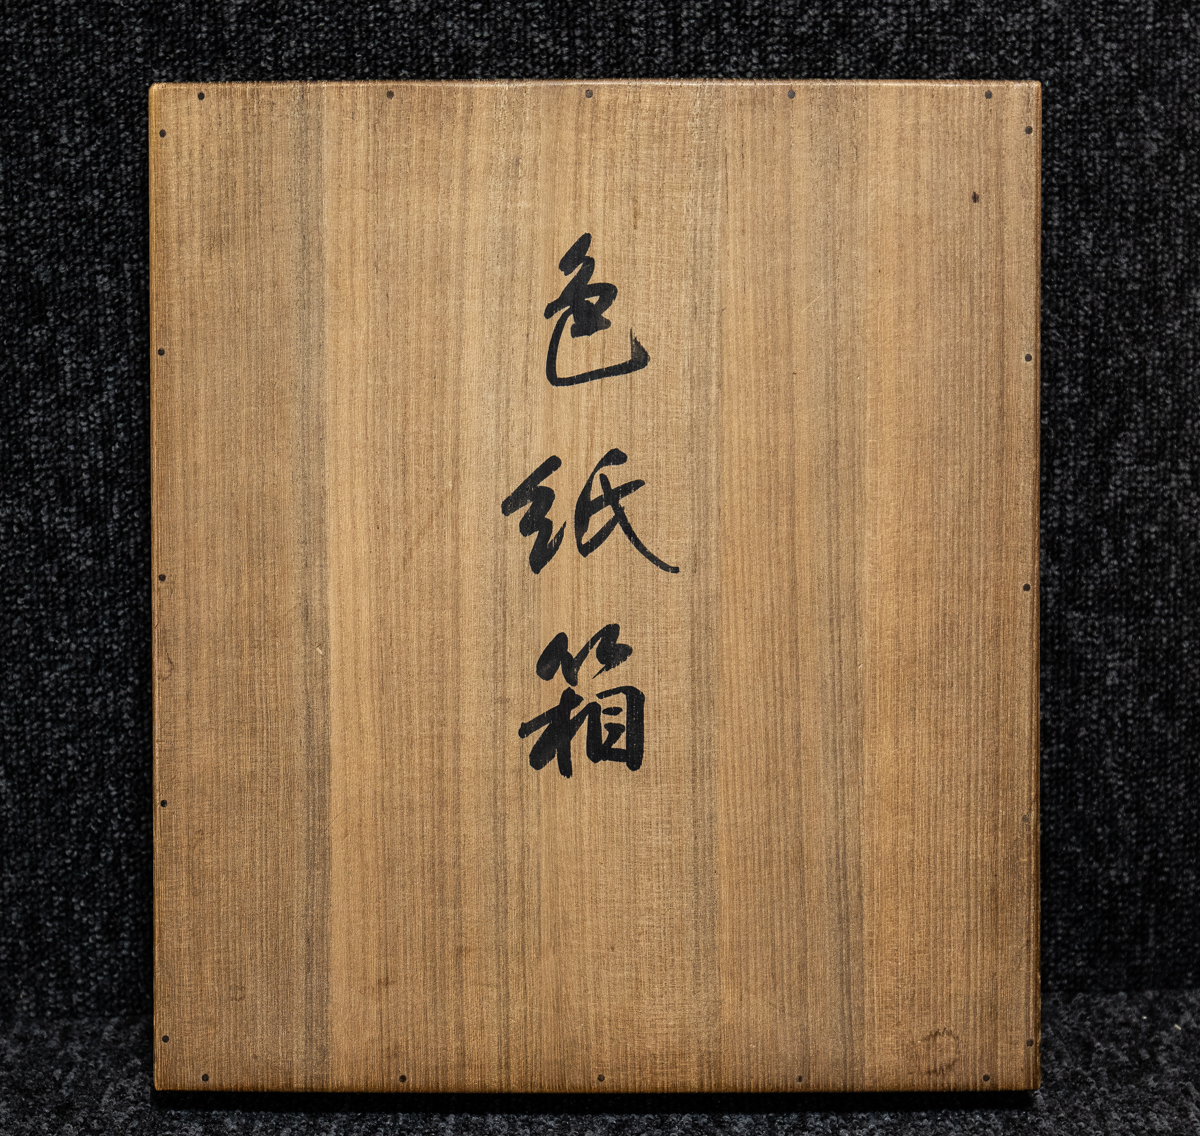 色紙箱